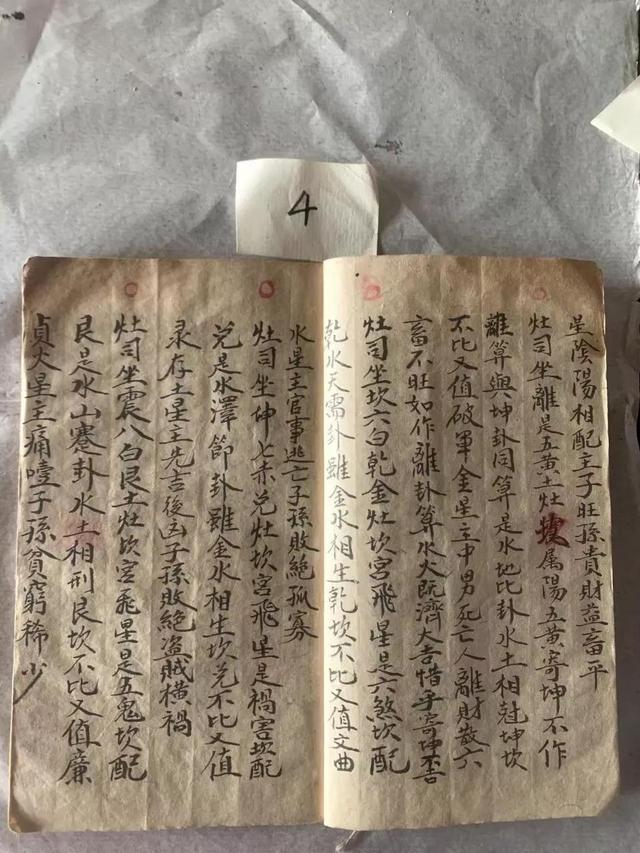 4
星陰陽相配主子旺孫貴財益畜平
灶司坐離是五黃土灶属陽五黃寄坤不作
離算與坤卦同算是水地比卦水土相尅坤坎
不比又值破軍金星主中男死亡人離財散六
畜不旺如作離卦算水火既濟大吉惜乎寄坤不吉
灶司坐坎六白乾金灶坎宮飛星是六煞坎配
乾水天需卦雖金水相生乾坎不比又值文曲
水星主官事逃亡子孫敗絕孤寡
灶司坐坤七赤兑灶坎宮飛星是禍害坎配
兑是水澤節卦雖金水相生坎兑不比又值
录存土星主先吉後凶子孫敗絕盜賊橫禍
灶司坐震八白艮土灶坎宮飛星是五鬼坎配
艮是水山蹇卦水土相刑艮坎不比又值廉
貞火星主痛噎子孫貧窮稀少